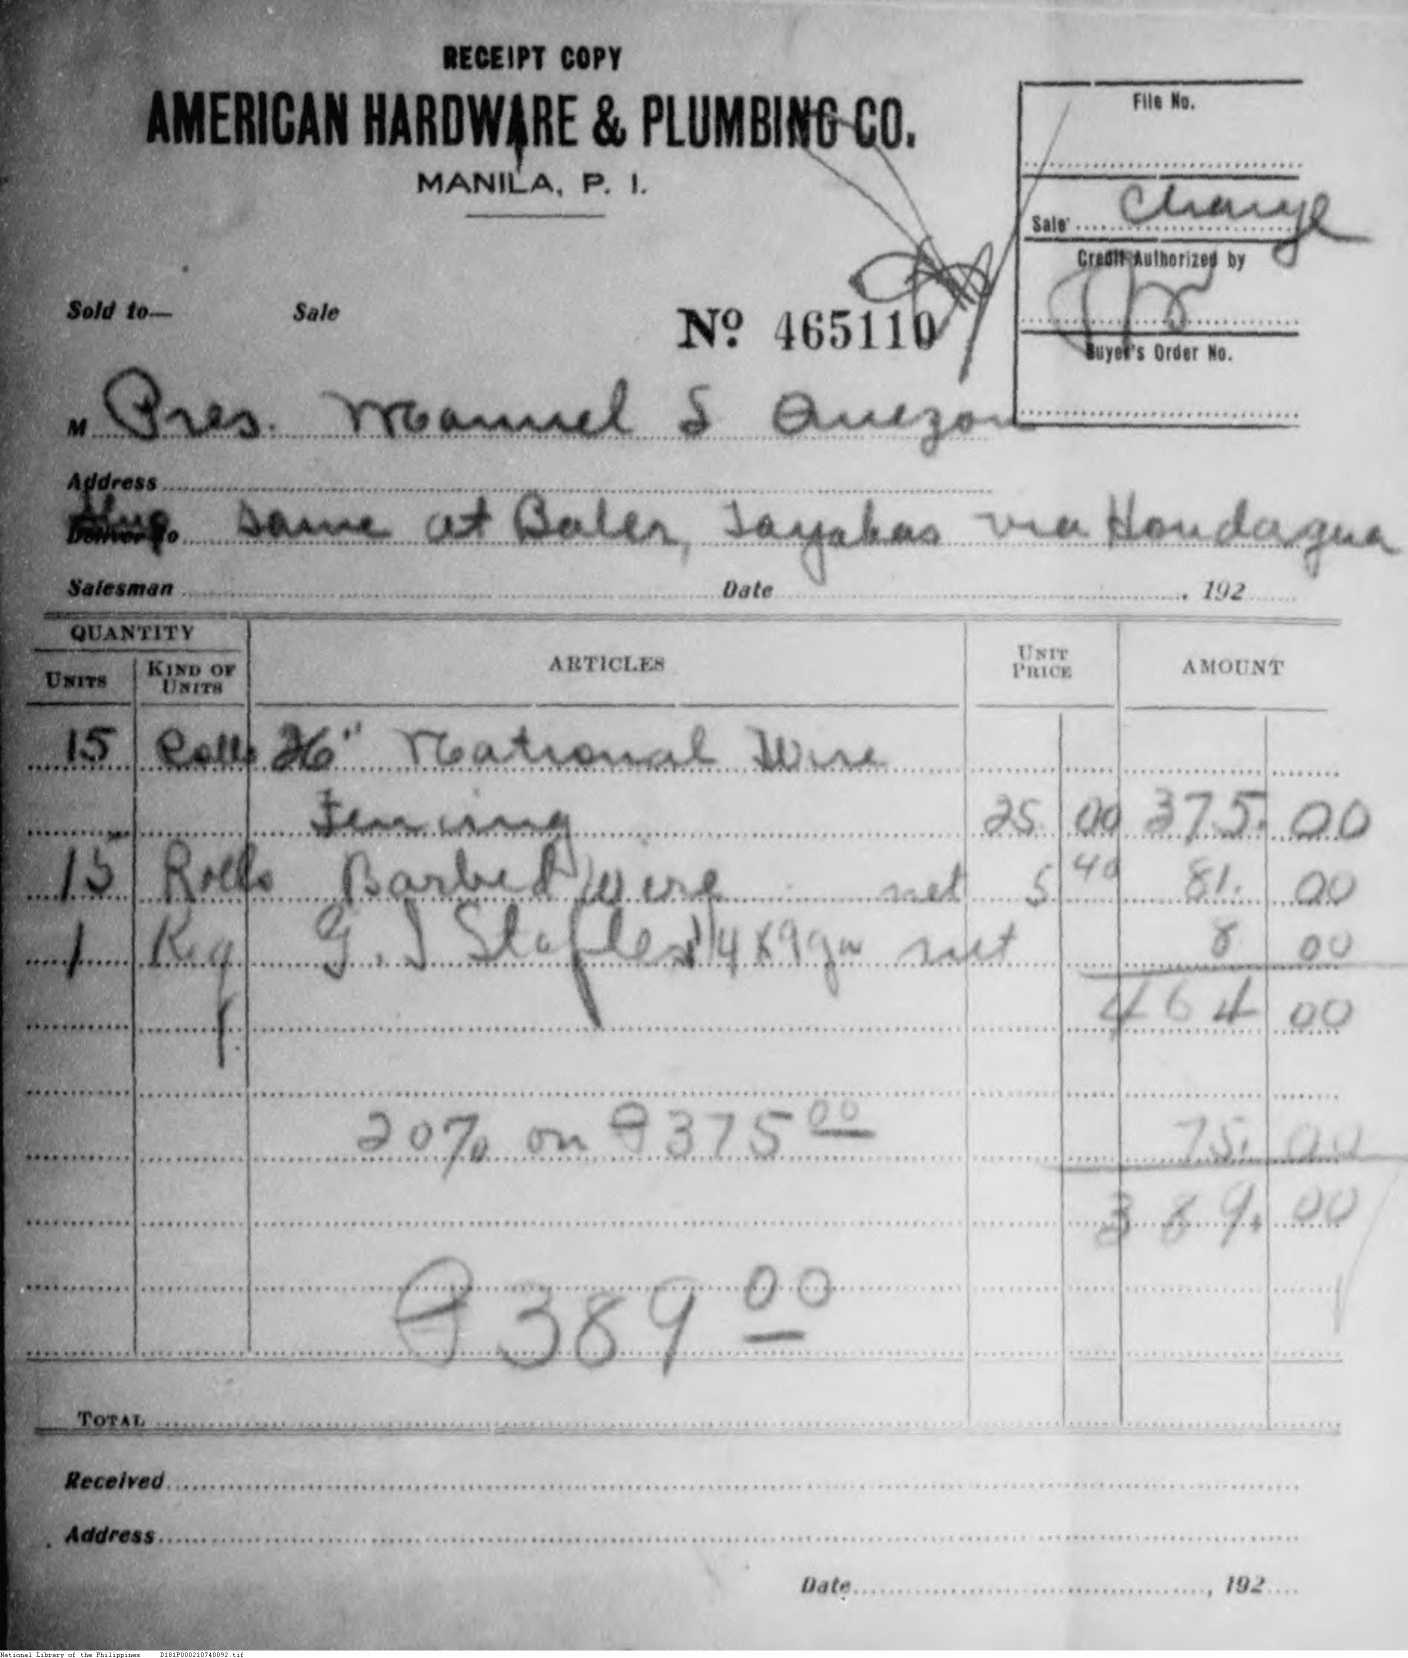 RECEIPT COPY
AMERICAN HARDWARE & PLUMBING CO.
MANILA, P. I.
File No.
Sale Charge
Credit Authorized by
Buyer's Order No.
Sold to— Sale
No 465110
M Pres. Manuel L Quezon
Address
Ship same at Baler, Tayabas via Hondagua
Salesman Date , 192
QUANTITY
UNITS KIND OF UNITS ARTICLES UNIT PRICE AMOUNT
15 Rolls 26" National Wire
Fencing 25 00 375. 00
15 Rolls Barbed Wire net 5 40 81. 00
1 Keg G. I Staples 1 1/4 x 9 ga net 8 00
464 00
20% on ₱375 00 75. 00
389. 00
₱389 00
TOTAL
Received
Address
Date , 192
National Library of the Philippines D181P000210740092.tif